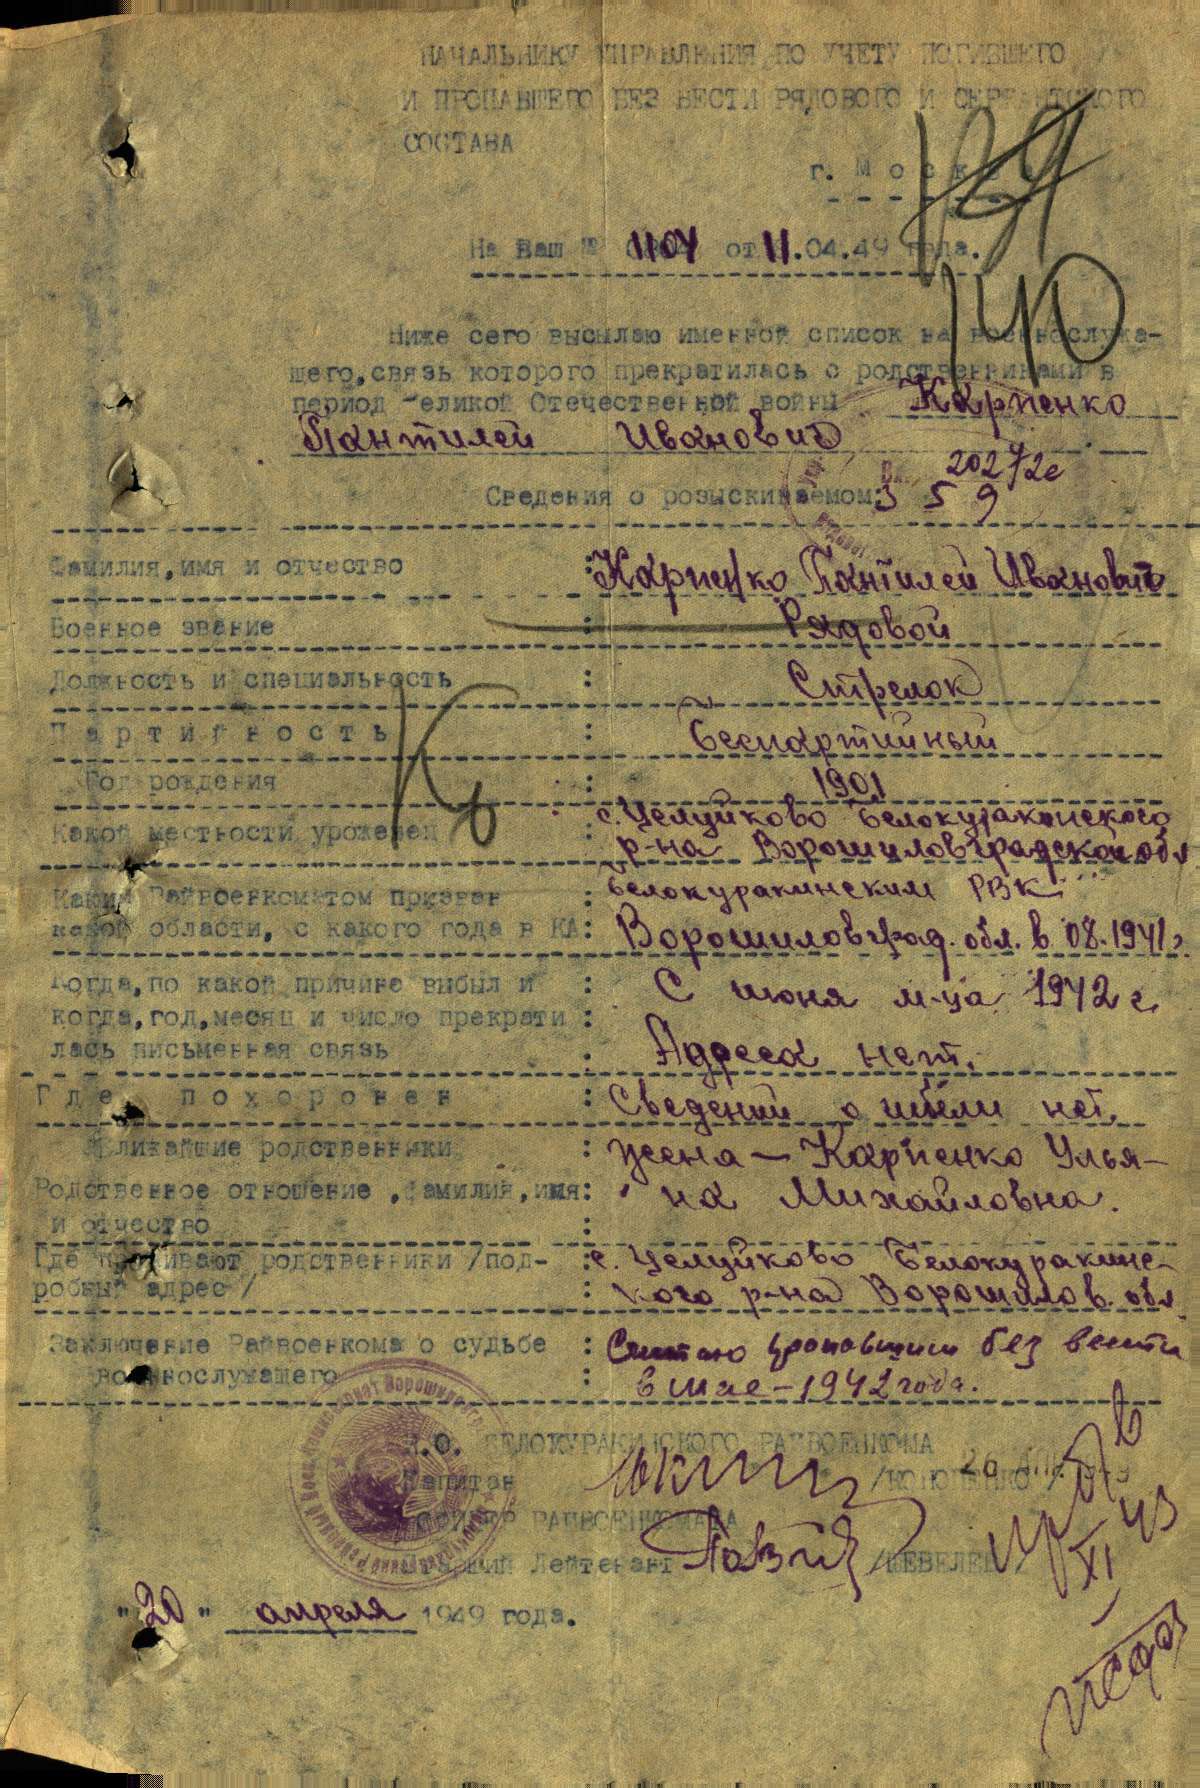 НАЧАЛЬНИКУ УПРАВЛЕНИЯ ПО УЧЕТУ ПОГИБШЕГО
И ПРОПАВШЕГО БЕЗ ВЕСТИ РЯДОВОГО И СЕРЖАНТСКОГО
СОСТАВА
г. Москва
140
На Ваш № 1104 от 11.04.49 года.
Ниже сего высылаю именной список на военнослужа-
щего, связь которого прекратилась с родственниками в
период Великой Отечественной войны Карпенко
Пантилей Иванович
20272с
Сведения о розыскиваемом:
Фамилия, имя и отчество : Карпенко Пантилей Иванович
Военное звание : Рядовой
Должность и специальность : Стрелок
Партийность : Беспартийный
Год рождения : 1901
Какой местности уроженец : с. Целуйково Белокуракинского
р-на Ворошиловградской обл
Каким Райвоенкоматом призван : Белокуракинским РВК
какой области, с какого года в КА: Ворошиловград. обл. в 08.1941г
Когда, по какой причине выбыл и : С июня м-ца 1942 г.
когда, год, месяц и число прекрати :
лась письменная связь : Адреса нет.
Где похоронен : Сведений о гибели нет.
Ближайшие родственники : жена - Карпенко Улья-
Родственное отношение, фамилия, имя: на Михайловна.
и отчество :
Где проживают родственники /под- : с. Целуйково Белокуракинс-
робный адрес/ : кого р-на Ворошилов. обл
Заключение Райвоенкома о судьбе : Считаю пропавшим без вести
военнослужащего : в мае - 1942 года.
В.О. БЕЛОКУРАКИНСКОГО РАЙВОЕНКОМА
Капитан /КОНОПЕНКО/
ОФИЦЕР РАЙВОЕНКОМАТА
Старший Лейтенант /ШЕВЕЛЕВ/
"20" апреля 1949 года.